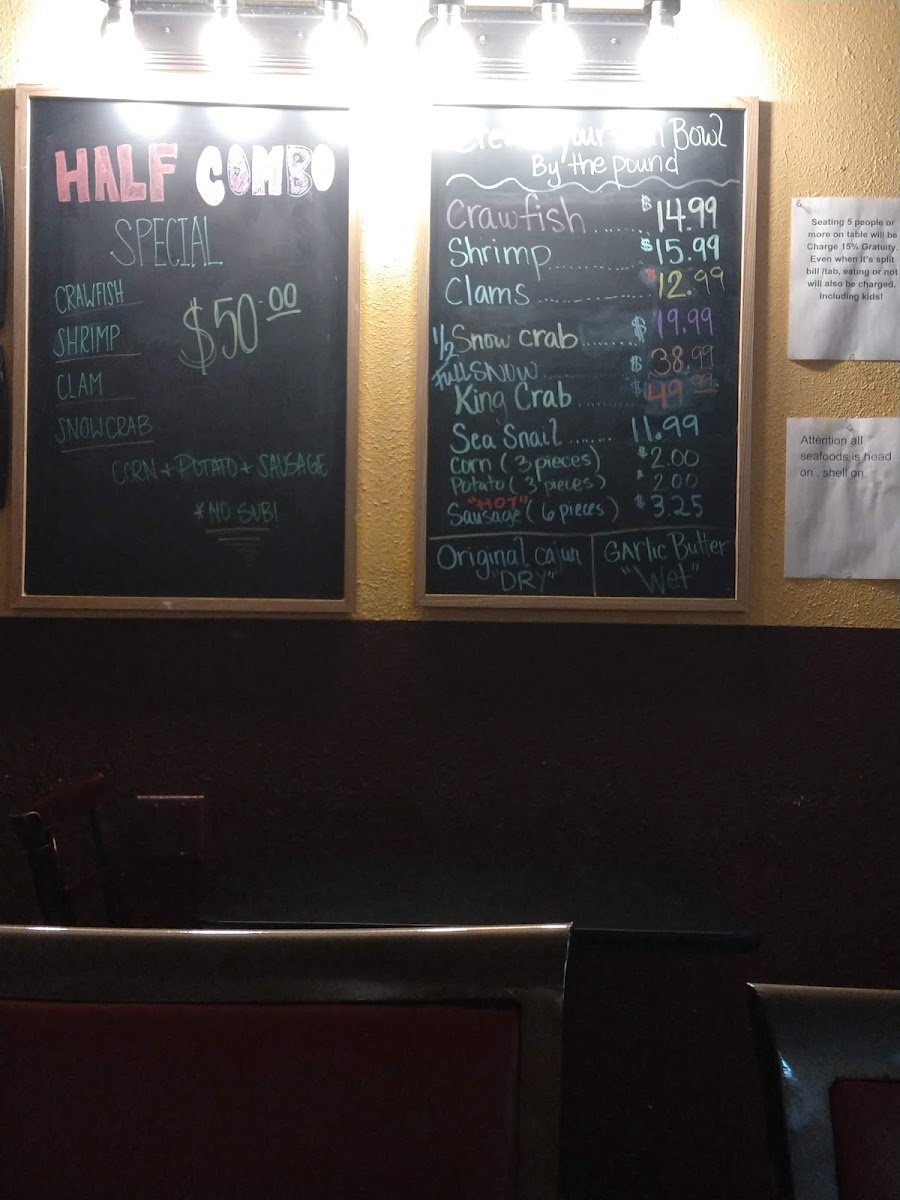 HALF COMBO
SPECIAL
CRAWFISH
SHRIMP
$50.00
CLAM
SNOWCRAB
CORN + POTATO + SAUSAGE
*NO SUB!
Create your own Bowl
By the pound
Crawfish ...... $14.99
Shrimp ........ $15.99
Clams ......... $12.99
1/2 Snow crab ...... $19.99
Full SNOW ........ $38.99
King Crab ........ $49.99
Sea Snail ....... 11.99
Corn (3 pieces) $2.00
Potato (3 pieces) $2.00
"HOT"
Sausage (6 pieces) $3.25
Original cajun
"DRY"
GARlic Butter
"Wet"
Seating 5 people or
more on table will be
Charge 15% Gratuity.
Even when it's split
bill /tab, eating or not
will also be charged.
Including kids!
Attention all
seafoods is head
on , shell on